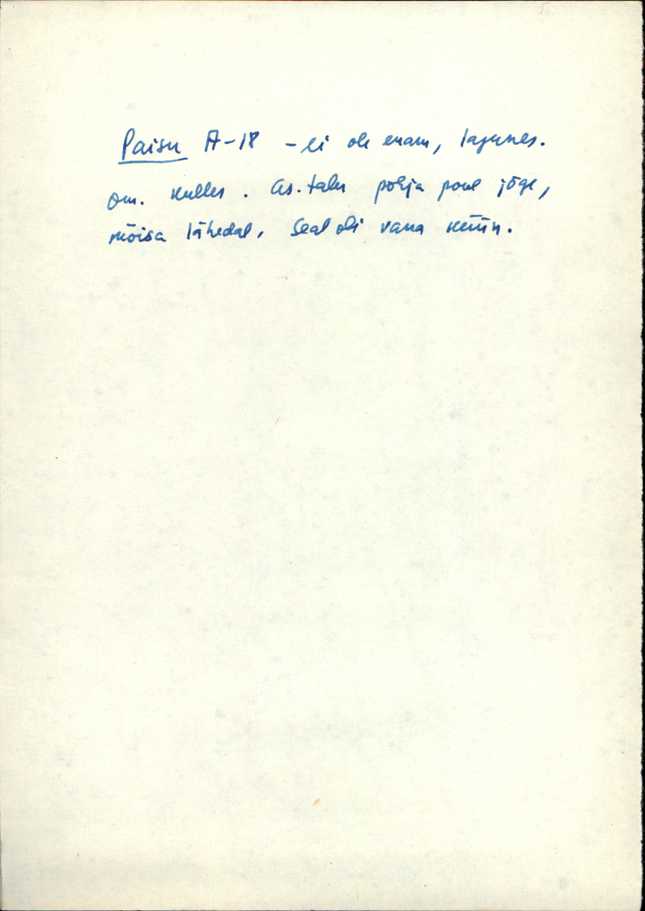 Paisu A-18 - ei ole enam, lagunes.
Om. Kulles. As. talu põhja pool jõge,
mõisa lähedal. Seal oli vana küün.